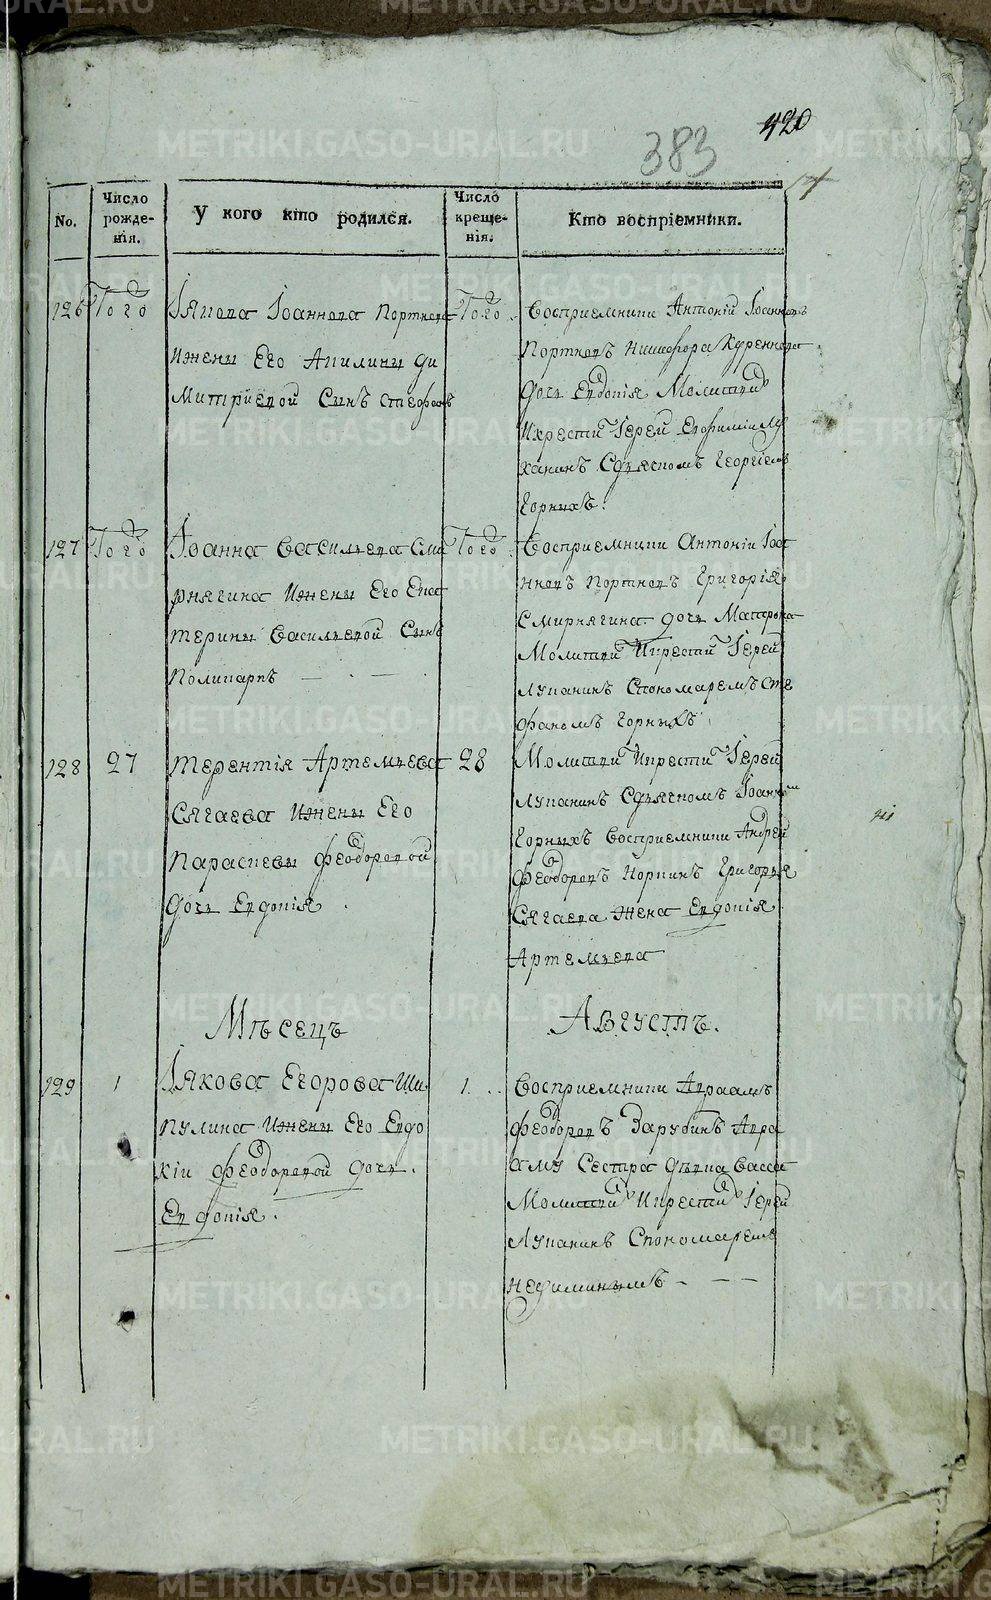 420
383
No.
Число рожде-нія.
У кого кто родился.
Число креще-нія.
Кто воспріемники.
126 Того Іякова Іоаннова Портнова
и жены Его Акилины Ди
митриевой Сынъ Стефанъ
Того
Восприемники Антоній Іоанновъ
Портновъ Никифора Куреннова
дочь Евдокія Молитвил
И крестил Іерей Евфимій Лу
канинъ Сдьяскомъ Георгіемъ
Горныхъ.
127 Того Іоанна Васильева Сми
рнягина и жены Его Ека
терины Васильевой Сынъ
Поликарпъ
Того
Восприемники Антоній Іоа
нновъ Портновъ Григорія
Смирнягина дочь Матрона
Молитвил И крестил Іерей
Луканинъ Спономаремъ Сте
фаномъ Горныхъ
128 27 Терентія Артемьева
Сягаева и жены Его
Параскевы Феодоровой
дочь Евдокія
28
Молитвил И крестил Іерей
Луканинъ Сдьячкомъ Іоанном
Горныхъ Восприемники Андрей
Феодоровъ Коркинъ Григорья
Сягаева жена Евдокія
Артемьева
Мѣсецъ Августъ.
129 1 Іякова Егорова Ши
пулина и жены Его Евдо
кіи Феодоровой дочь
Евдокія.
1.
Восприемники Авраамъ
Феодоровъ Зарубинъ Авра
аму Сестра дѣвка Васса
Молитвил И крестил Іерей
Луканинъ Спономаремъ
METRIKI.GASO-URAL.RU